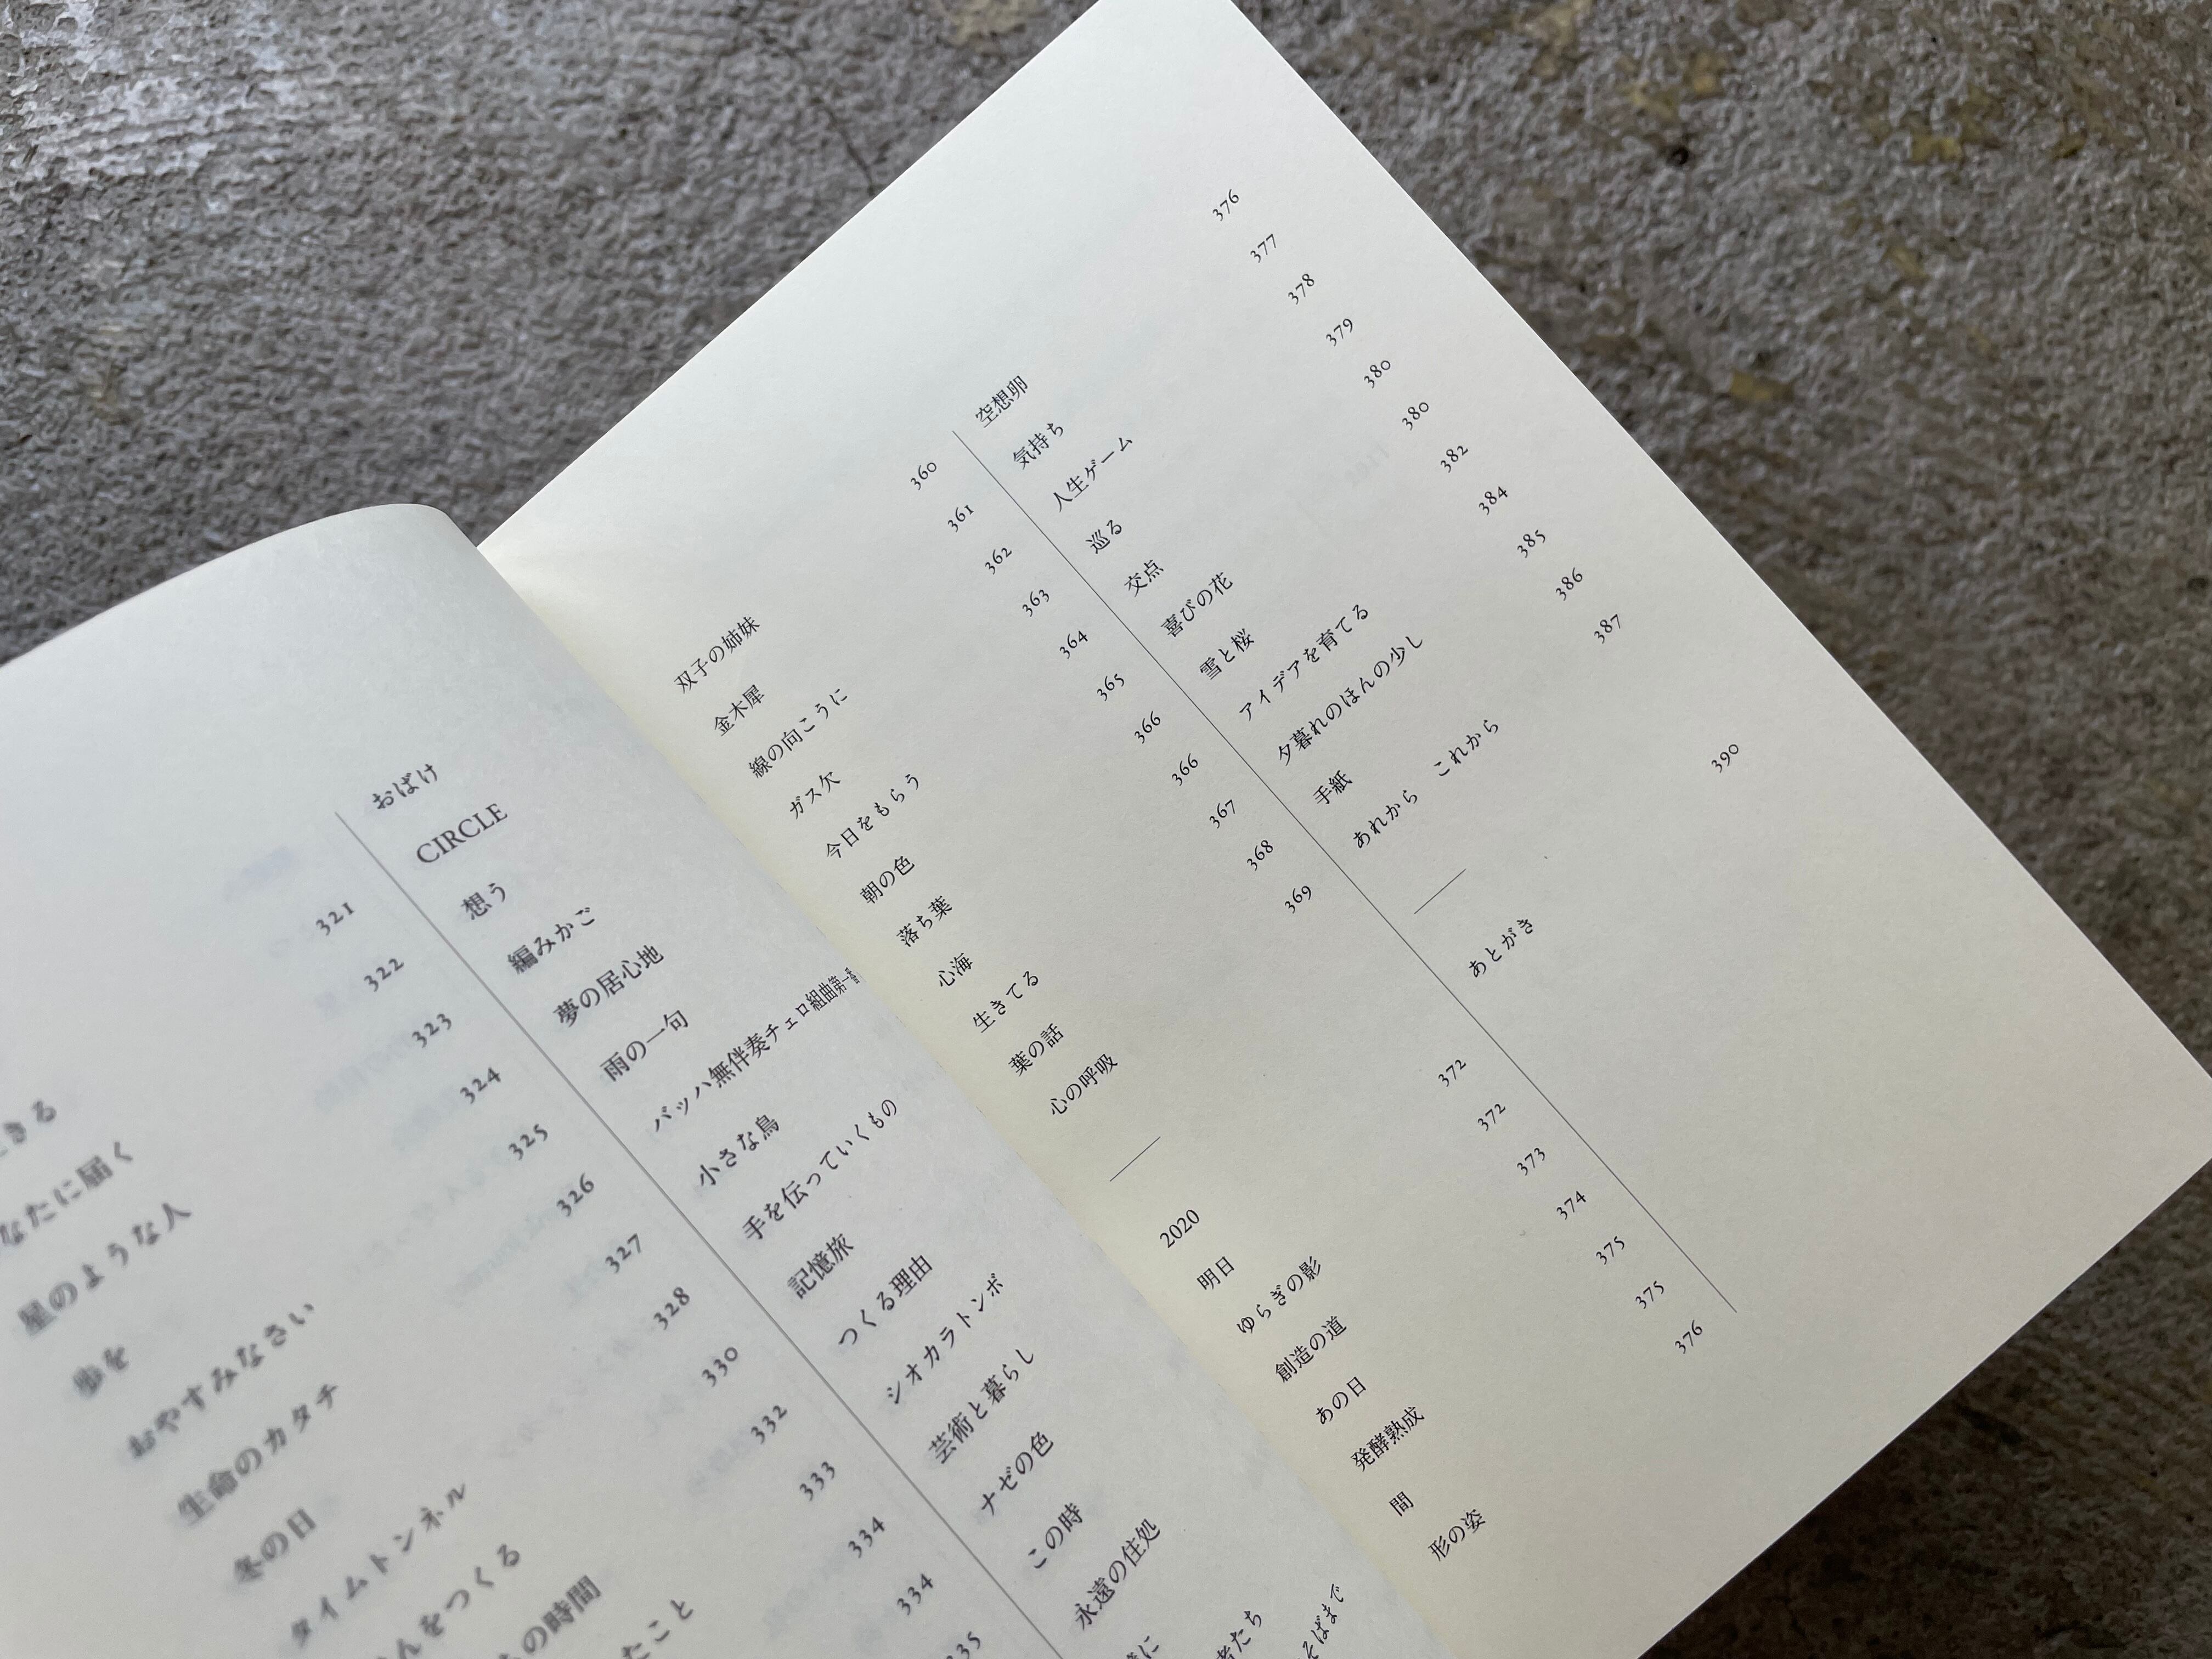 きる 321
なたに届く 322
星のような人 323
歩を 324
おやすみなさい 325
生命のカタチ 326
冬の日 327
タイムトンネル 328
んをつくる 330
の時間 332
たこと 333
334
334
35
おばけ
CIRCLE
想う
編みかご
夢の居心地
雨の一句
バッハ無伴奏チェロ組曲第一番
小さな鳥
手を伝っていくもの
記憶旅
つくる理由
シオカラトンボ
芸術と暮らし
ナゼの色
この時
永遠の住処
に
者たち
そばまで
双子の姉妹 360
金木犀 361
線の向こうに 362
ガス欠 363
今日をもらう 364
朝の色 365
落ち葉 366
心海 366
生きてる 367
葉の話 368
心の呼吸 369
2020
明日 372
ゆらぎの影 372
創造の道 373
あの日 374
発酵熟成 375
間 375
形の姿 376
空想卵 376
気持ち 377
人生ゲーム 378
巡る 379
交点 380
喜びの花 380
雪と桜 382
アイデアを育てる 384
夕暮れのほんの少し 385
手紙 386
あれから　これから 387
あとがき 390